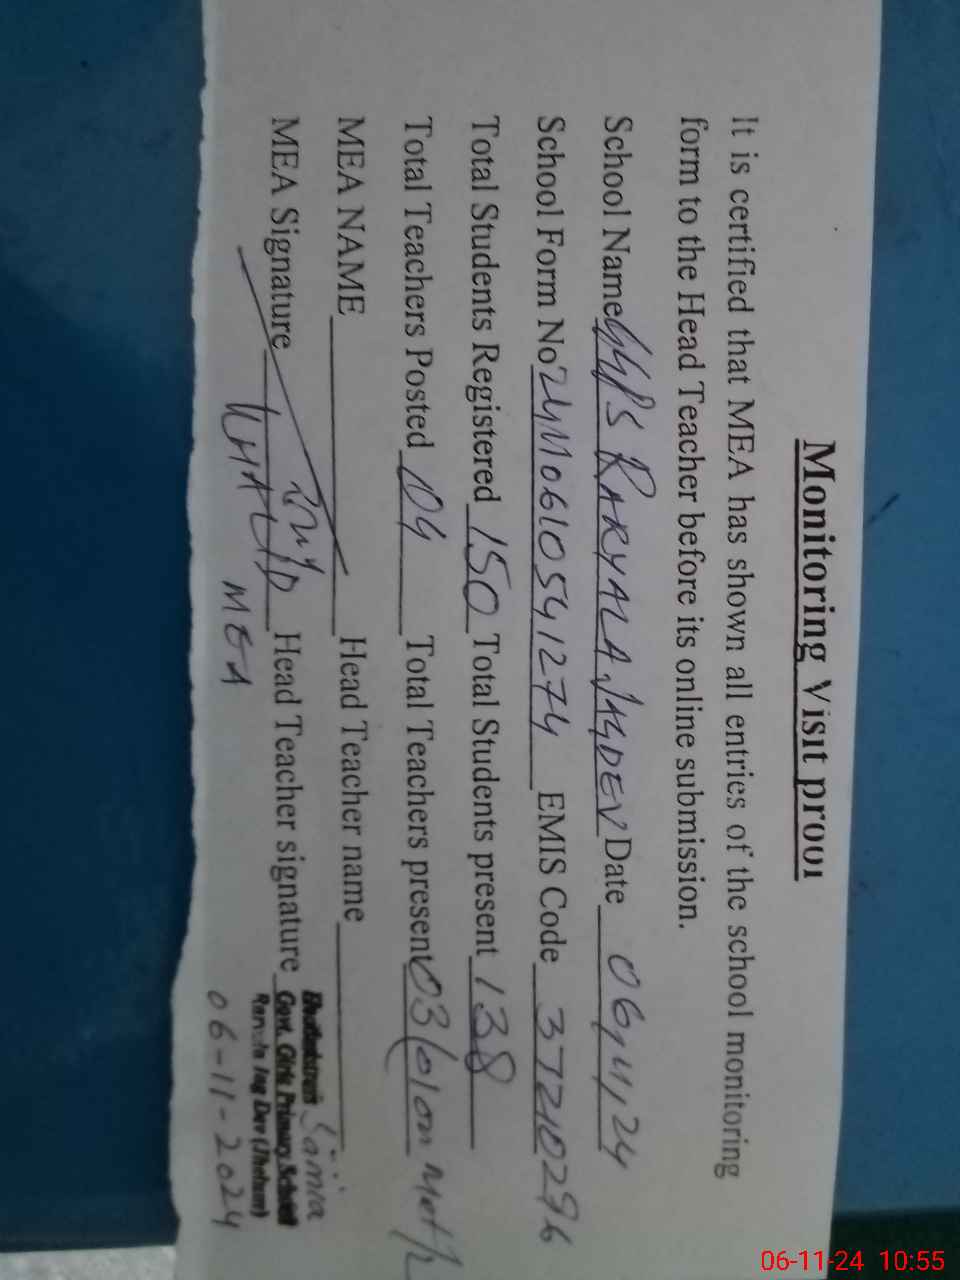 Monitoring Visit proof
It is certified that MEA has shown all entries of the school monitoring
form to the Head Teacher before its online submission.
School Name GGPS RARYALA JAGDEV Date 06/11/24
School Form No 24M0610541274 EMIS Code 37210296
Total Students Registered 150 Total Students present 138
Total Teachers Posted 04 Total Teachers present 03
MEA NAME Head Teacher name
MEA Signature Head Teacher signature Govt. Girls Primary School
MEA
06-11-2024
06-11-24 10:55